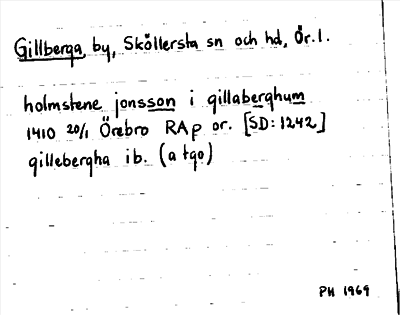 Gillberga, by, Sköllersta sn och hd, Ör. l.
holmstene jonsson i gillaberghum
1410 20/1 Örebro RAp or. [SD: 1242]
gillebergha ib. (a tgo)
PH 1969